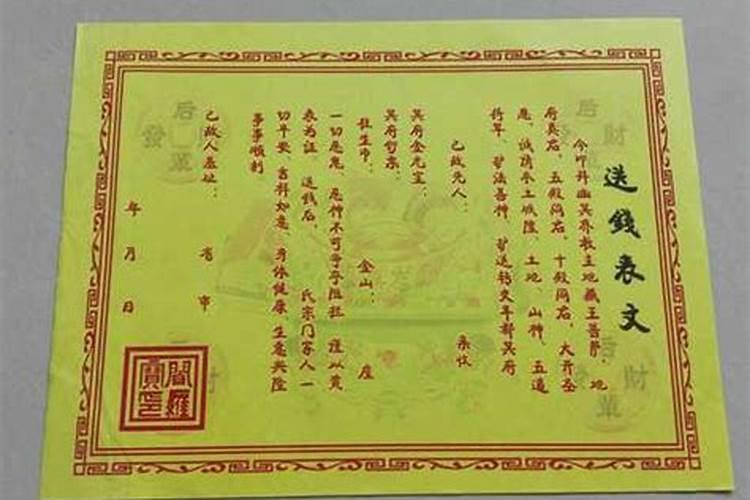 送錢表文
今叩拜幽冥界教主地藏王菩薩、地
府真君、五殿阎君、十殿阎君、大齐圣
恩、诚请本土城隍、土地、山神、五道
将军、护法善神、护送钱文早都冥府
已故先人： 亲收
冥府金元宝：
冥府哲票： 金山： 座
往生巾：
一切恶鬼、恶神不可争夺阻拦、谨以黄
表为证、送钱后、 氏宗门家人一
切平安、吉祥如意、身体健康、生意兴隆
事事顺利
已故人墓址： 省 市
年 月 日
閻羅寶印
后 發 財 單